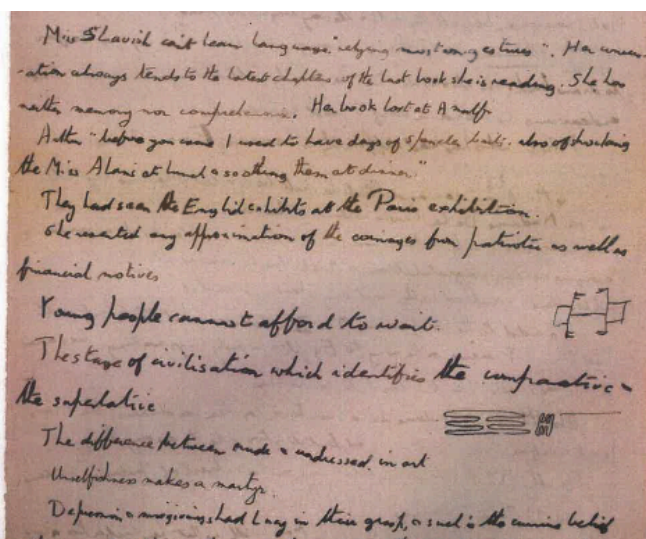 Miss Lavish can't learn language "relying most on gestures". Her conver-
-ation always tends to the latest chapter of the last book she is reading. She has
neither memory nor comprehension. Her book lost at Amalfi
"before you came I used to have days of also of shocking
the Miss Alans at lunch & soothing them at dinner."
They had seen the English exhibits at the Paris exhibition.
She resented any approximation of the coinages from patriotic as well as
financial motives
Young people cannot afford to wait.
The stage of civilisation which identifies the comparative &
the superlative
The difference between nude & undressed in art
Unselfishness makes a martyr.
Depression & misgivings had in their grasp, & such is the belief